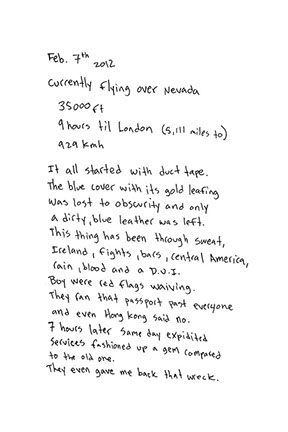 Feb. 7th 2012
Currently flying over Nevada
35000 ft
9 hours til London (5,111 miles to)
929 kmh
It all started with duct tape.
The blue cover with its gold leafing
was lost to obscurity and only
a dirty, blue leather was left.
This thing has been through sweat,
Ireland, fights, bars, central America,
rain, blood and a D.U.I.
Boy were red flags waiving.
They ran that passport past everyone
and even Hong Kong said no.
7 hours later same day expidited
services fashioned up a gem compared
to the old one.
They even gave me back that wreck.